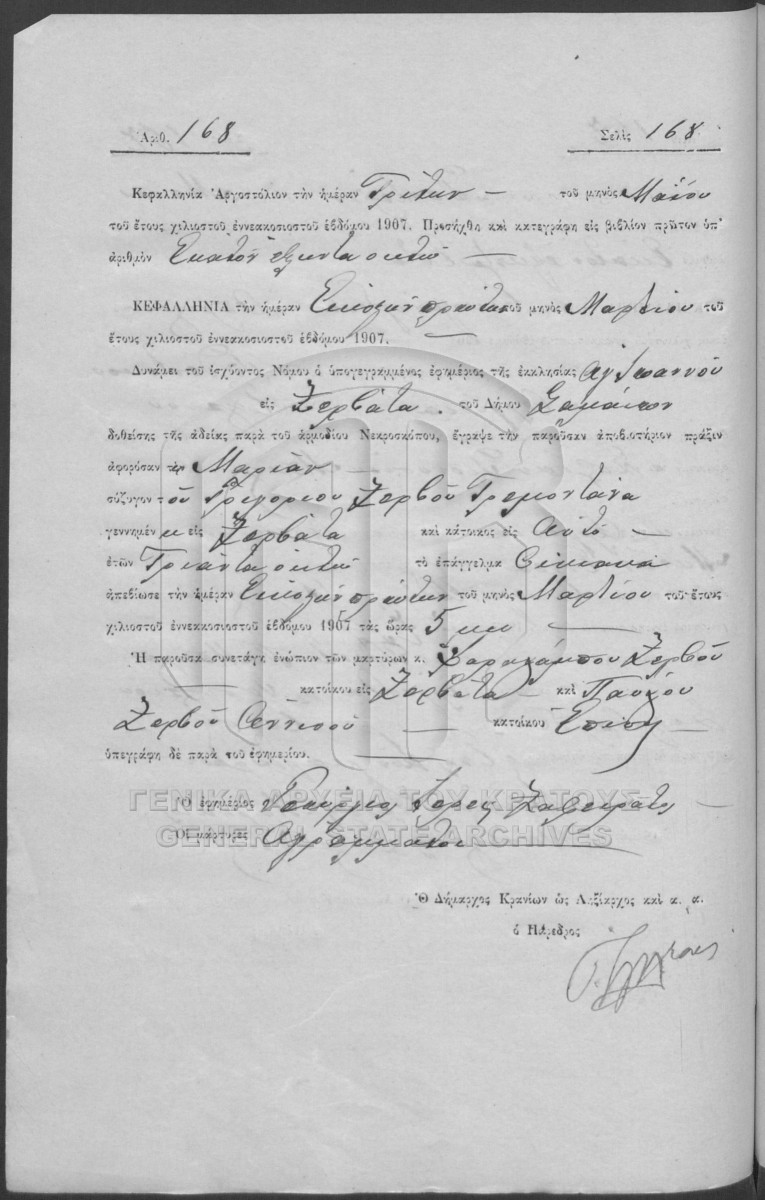 Ἀριθ. 168 Σελὶς 168
Κεφαλληνία Ἀργοστόλιον τὴν ἡμέραν Τρίτην — τοῦ μηνὸς Μαΐου
τοῦ ἔτους χιλιοστοῦ ἐννεακοσιοστοῦ ἑβδόμου 1907. Προσήχθη καὶ κατεγράφη εἰς βιβλίον πρῶτον ὑπ'
ἀριθμὸν Ἑκατὸν ἑξῆντα ὀκτὼ —
ΚΕΦΑΛΛΗΝΙΑ τὴν ἡμέραν Εἰκοστὴν πρώτην τοῦ μηνὸς Μαρτίου τοῦ
ἔτους χιλιοστοῦ ἐννεακοσιοστοῦ ἑβδόμου 1907. —
Δυνάμει τοῦ ἰσχύοντος Νόμου ὁ ὑπογεγραμμένος ἐφημέριος τῆς ἐκκλησίας Ἁγ Ἰωαννοῦ
εἰς Ζερβάτα. τοῦ Δήμου Σαμαίων
δοθείσης τῆς ἀδείας παρὰ τοῦ ἁρμοδίου Νεκροσκόπου, ἔγραψε τὴν παροῦσαν ἀποβιωτήριον πρᾶξιν
ἀφορῶσαν τὴν Μαρίαν —
σύζυγον τοῦ Γρηγορίου Ζερβοῦ Τρεμοντάνα
γεννημένη εἰς Ζερβάτα καὶ κάτοικος εἰς Αὐτό —
ἐτῶν Τριάντα ὀκτὼ τὸ ἐπάγγελμα Οἰκιακά
ἀπεβίωσε τὴν ἡμέραν Εἰκοστὴν πρώτην τοῦ μηνὸς Μαρτίου τοῦ ἔτους
χιλιοστοῦ ἐννεακοσιοστοῦ ἑβδόμου 1907 τὰς ὥρας 5 μμ —
Ἡ παροῦσα συνετάγη ἐνώπιον τῶν μαρτύρων κ. Χαραλάμπου Ζερβοῦ
— κατοίκου εἰς Ζερβάτα — καὶ Παύλου
Ζερβοῦ — κατοίκου —
ὑπεγράφη δὲ παρὰ τοῦ ἐφημερίου. —
Ὁ ἐφημέριος Γεώργιος Ἱερεὺς —
ΓΕΝΙΚΑ ΑΡΧΕΙΑ ΤΟΥ ΚΡΑΤΟΥΣ
Οἱ μάρτυρες Ἀγράμματοι —
GENERAL STATE ARCHIVES
Ὁ Δήμαρχος Κρανίων ὡς Ληξίαρχος καὶ α. α.
ὁ Πάρεδρος